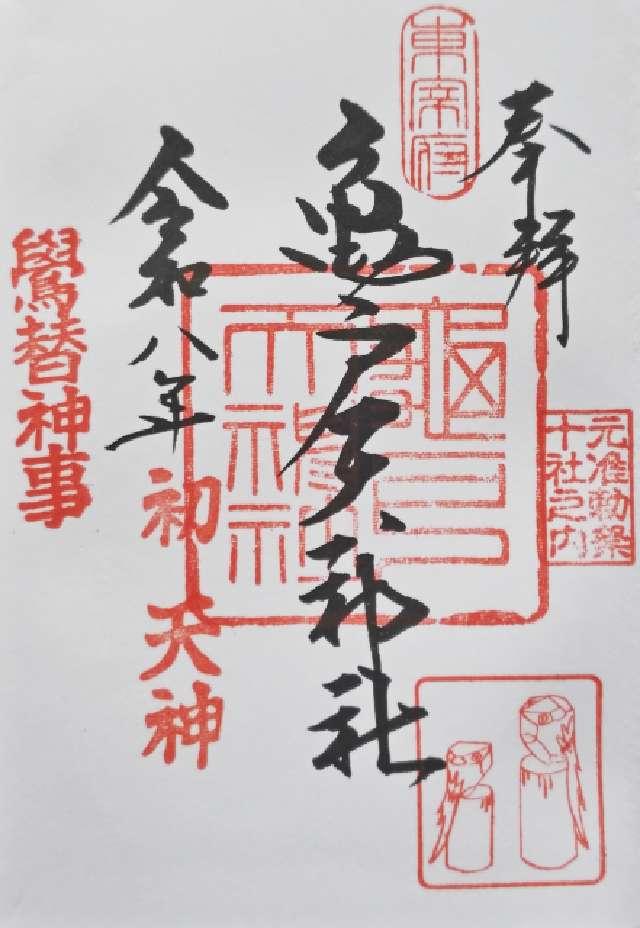 奉拝
東宰府
元准勅祭
十社之内
亀戸天神社
亀戸
天神
令和八年
初天神
鷽替神事